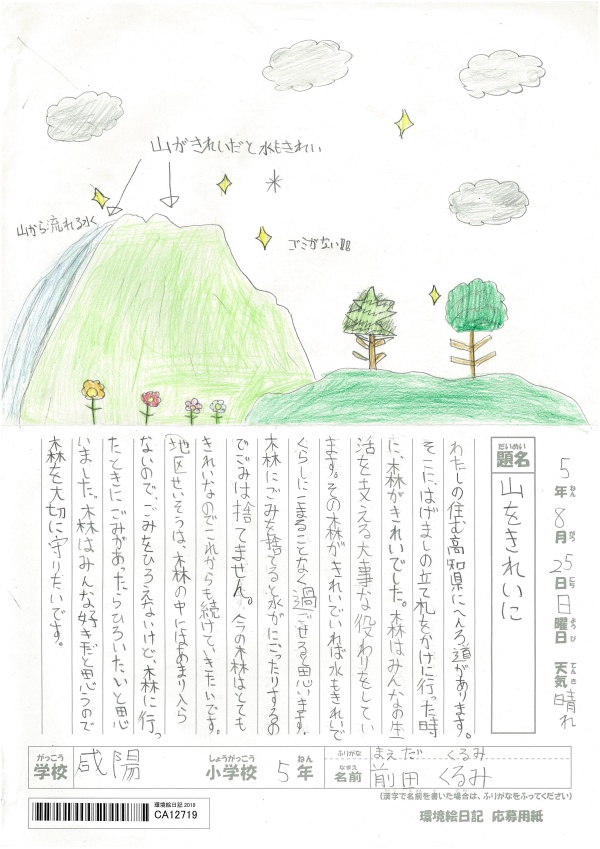 山がきれいだと水もきれい
山から流れる水
ゴミがない!!!
5年8月25日日曜日 天気晴れ
ねん がつ にち ようび てんき
だいめい
題名 山をきれいに
わたしの住む高知県にへんろ道があります。
そこに、はげましの立て札をかけに行った時
に、森がきれいでした。森はみんなの生
活を支える大事な役わりをしてい
ます。その森がきれいでいれば水もきれいで
くらしにこまることなく過ごせると思います。
森にごみを捨てると水がにごったりするの
でごみは捨てません。今の森はとても
きれいなのでこれからも続けていきたいです。
地区せいそうは、森の中にはあまり入ら
ないので、ごみをひろえないけど、森に行っ
たときにごみがあったらひろいたいと思
いました。森はみんな好きだと思うので
森を大切に守りたいです。
がっこう しょうがっこう ねん
学校 咸陽 小学校 5年
ふりがな まえだ くるみ
なまえ
名前 前田 くるみ
(漢字で名前を書いた場合は、ふりがなをふってください)
環境絵日記 2019
CA12719
環境絵日記 応募用紙